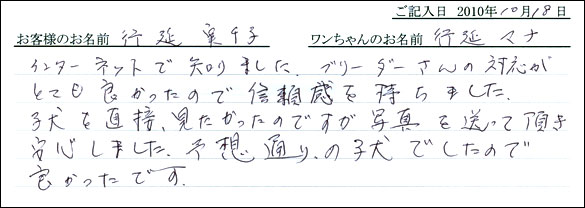 ご記入日 2010年10月18日
お客様のお名前 行延 実千子 ワンちゃんのお名前 行延 マナ
インターネットで知りました。ブリーダーさんの対応が
とても良かったので信頼感を持ちました。
子犬を直接、見たかったのですが写真を送って頂き
安心しました。予想通り、の子犬でしたので
良かったです。